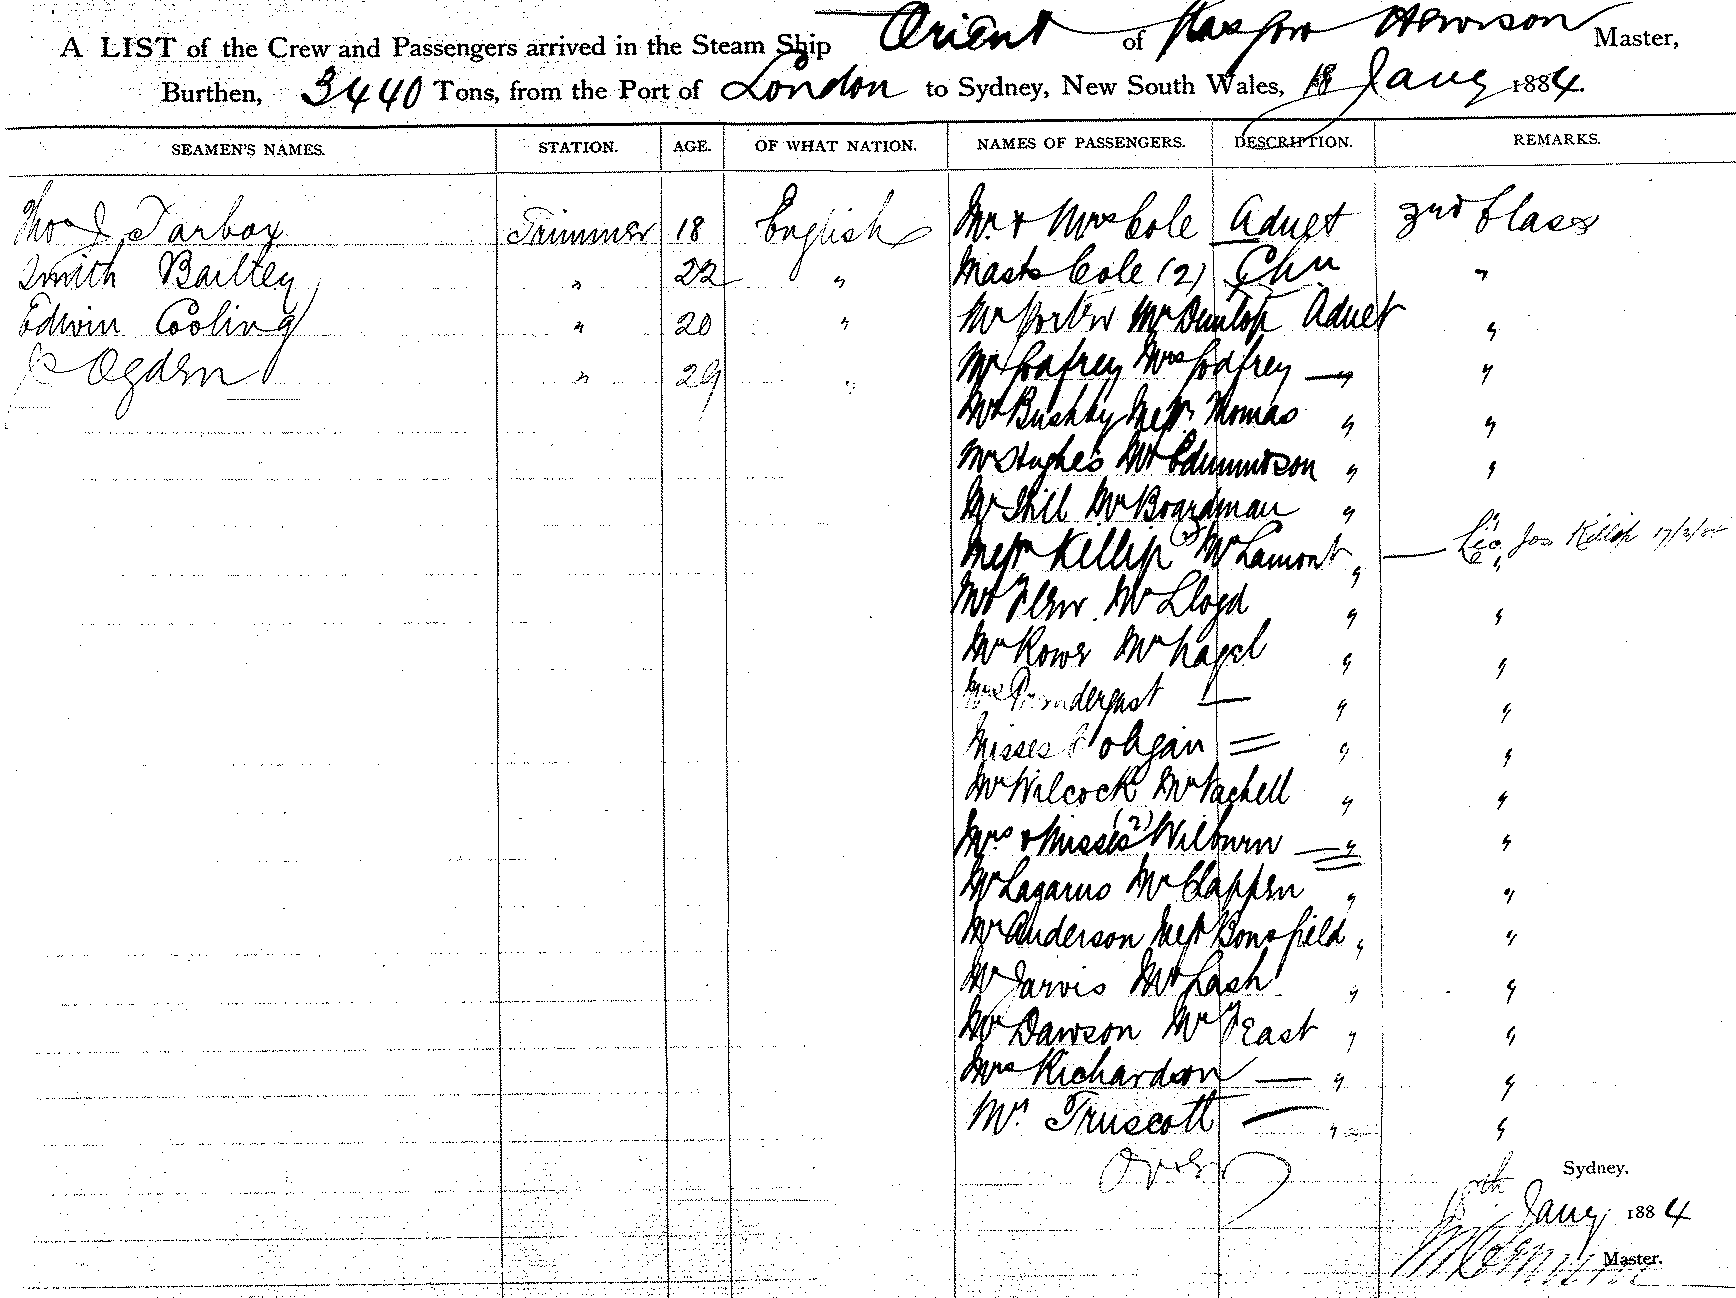 A LIST of the Crew and Passengers arrived in the Steam Ship Orient of Glasgow Hewison Master,
Burthen, 3440 Tons, from the Port of London to Sydney, New South Wales, 18 Jany 1884.
SEAMEN'S NAMES. STATION. AGE. OF WHAT NATION. NAMES OF PASSENGERS. DESCRIPTION. REMARKS.
Thos J Tarbox Trimmer 18 English Mr. & Mrs Cole Adult 2nd Class
Smith Bailley " 22 " Mastr Cole (2) Chn "
Edwin Cooling " 20 " Mr Porter Mr Dunlop Adult "
Ogden " 29 " Mr Godfrey Mrs Godfrey — " "
Mr Bushby Messrs Thomas " "
Mr Hughes Mr Edmundson " "
Mr Hill Mr Boardman " "
Messrs Killip (3) Mr Lamont " — Jas Killip "
Mr Flew Mr Lloyd " "
Mr Rowe Mr Nagel " "
Mrs Prendergast — " "
Misses Cohgan = " "
Mr Wilcock Mr Vachell " "
Mrs & Misses (2) Wilburn — " "
Mr Lazarus Mr Clappen " "
Mr Anderson Messrs Bousfield " "
Mr Jarvis Mr Lash " "
Mr Dawson Mr Feast " "
Mrs Richardson — " "
Mr. Truscott — " "
Over
Sydney.
Jany 1884
Master.